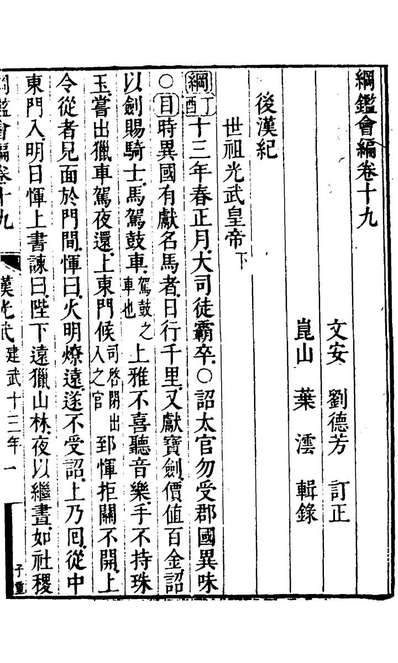 綱鑑會編卷十九
文安　劉德芳　訂正
崑山　葉澐　輯錄
後漢紀
世祖光武皇帝下
綱丁酉十三年春正月大司徒霸卒○詔太官勿受郡國異味
○目時異國有獻名馬者日行千里又獻寶劍價值百金詔
以劍賜騎士馬駕鼓車駕鼓之車也上雅不喜聽音樂手不持珠
玉嘗出獵車駕夜還上東門候司啓閉出入之官郅惲拒關不開上
令從者見面於門間惲曰火明燎遠遂不受詔上乃囘從中
東門入明日惲上書諫曰陛下遠獵山林夜以繼晝如社稷
綱鑑會編卷十九
漢光武　建武十三年　一
子重